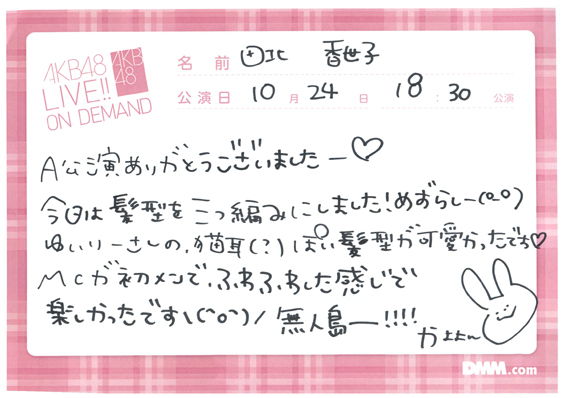 AKB48
LIVE!!
ON DEMAND
AKB
48
名 前 田北 香世子
公演日 10 月 24 日 18 : 30 公演
A公演ありがとうございましたー♡
今日は髪型を三つ編みにしました!めずらしー(o_o)
ゆいりーさんの、猫耳(?)ぽい髪型が可愛かったです♡
MCが初メンで、ふわふわした感じで
楽しかったです\(^o^)/ 無人島ー!!!!
かよよん
DMM.com